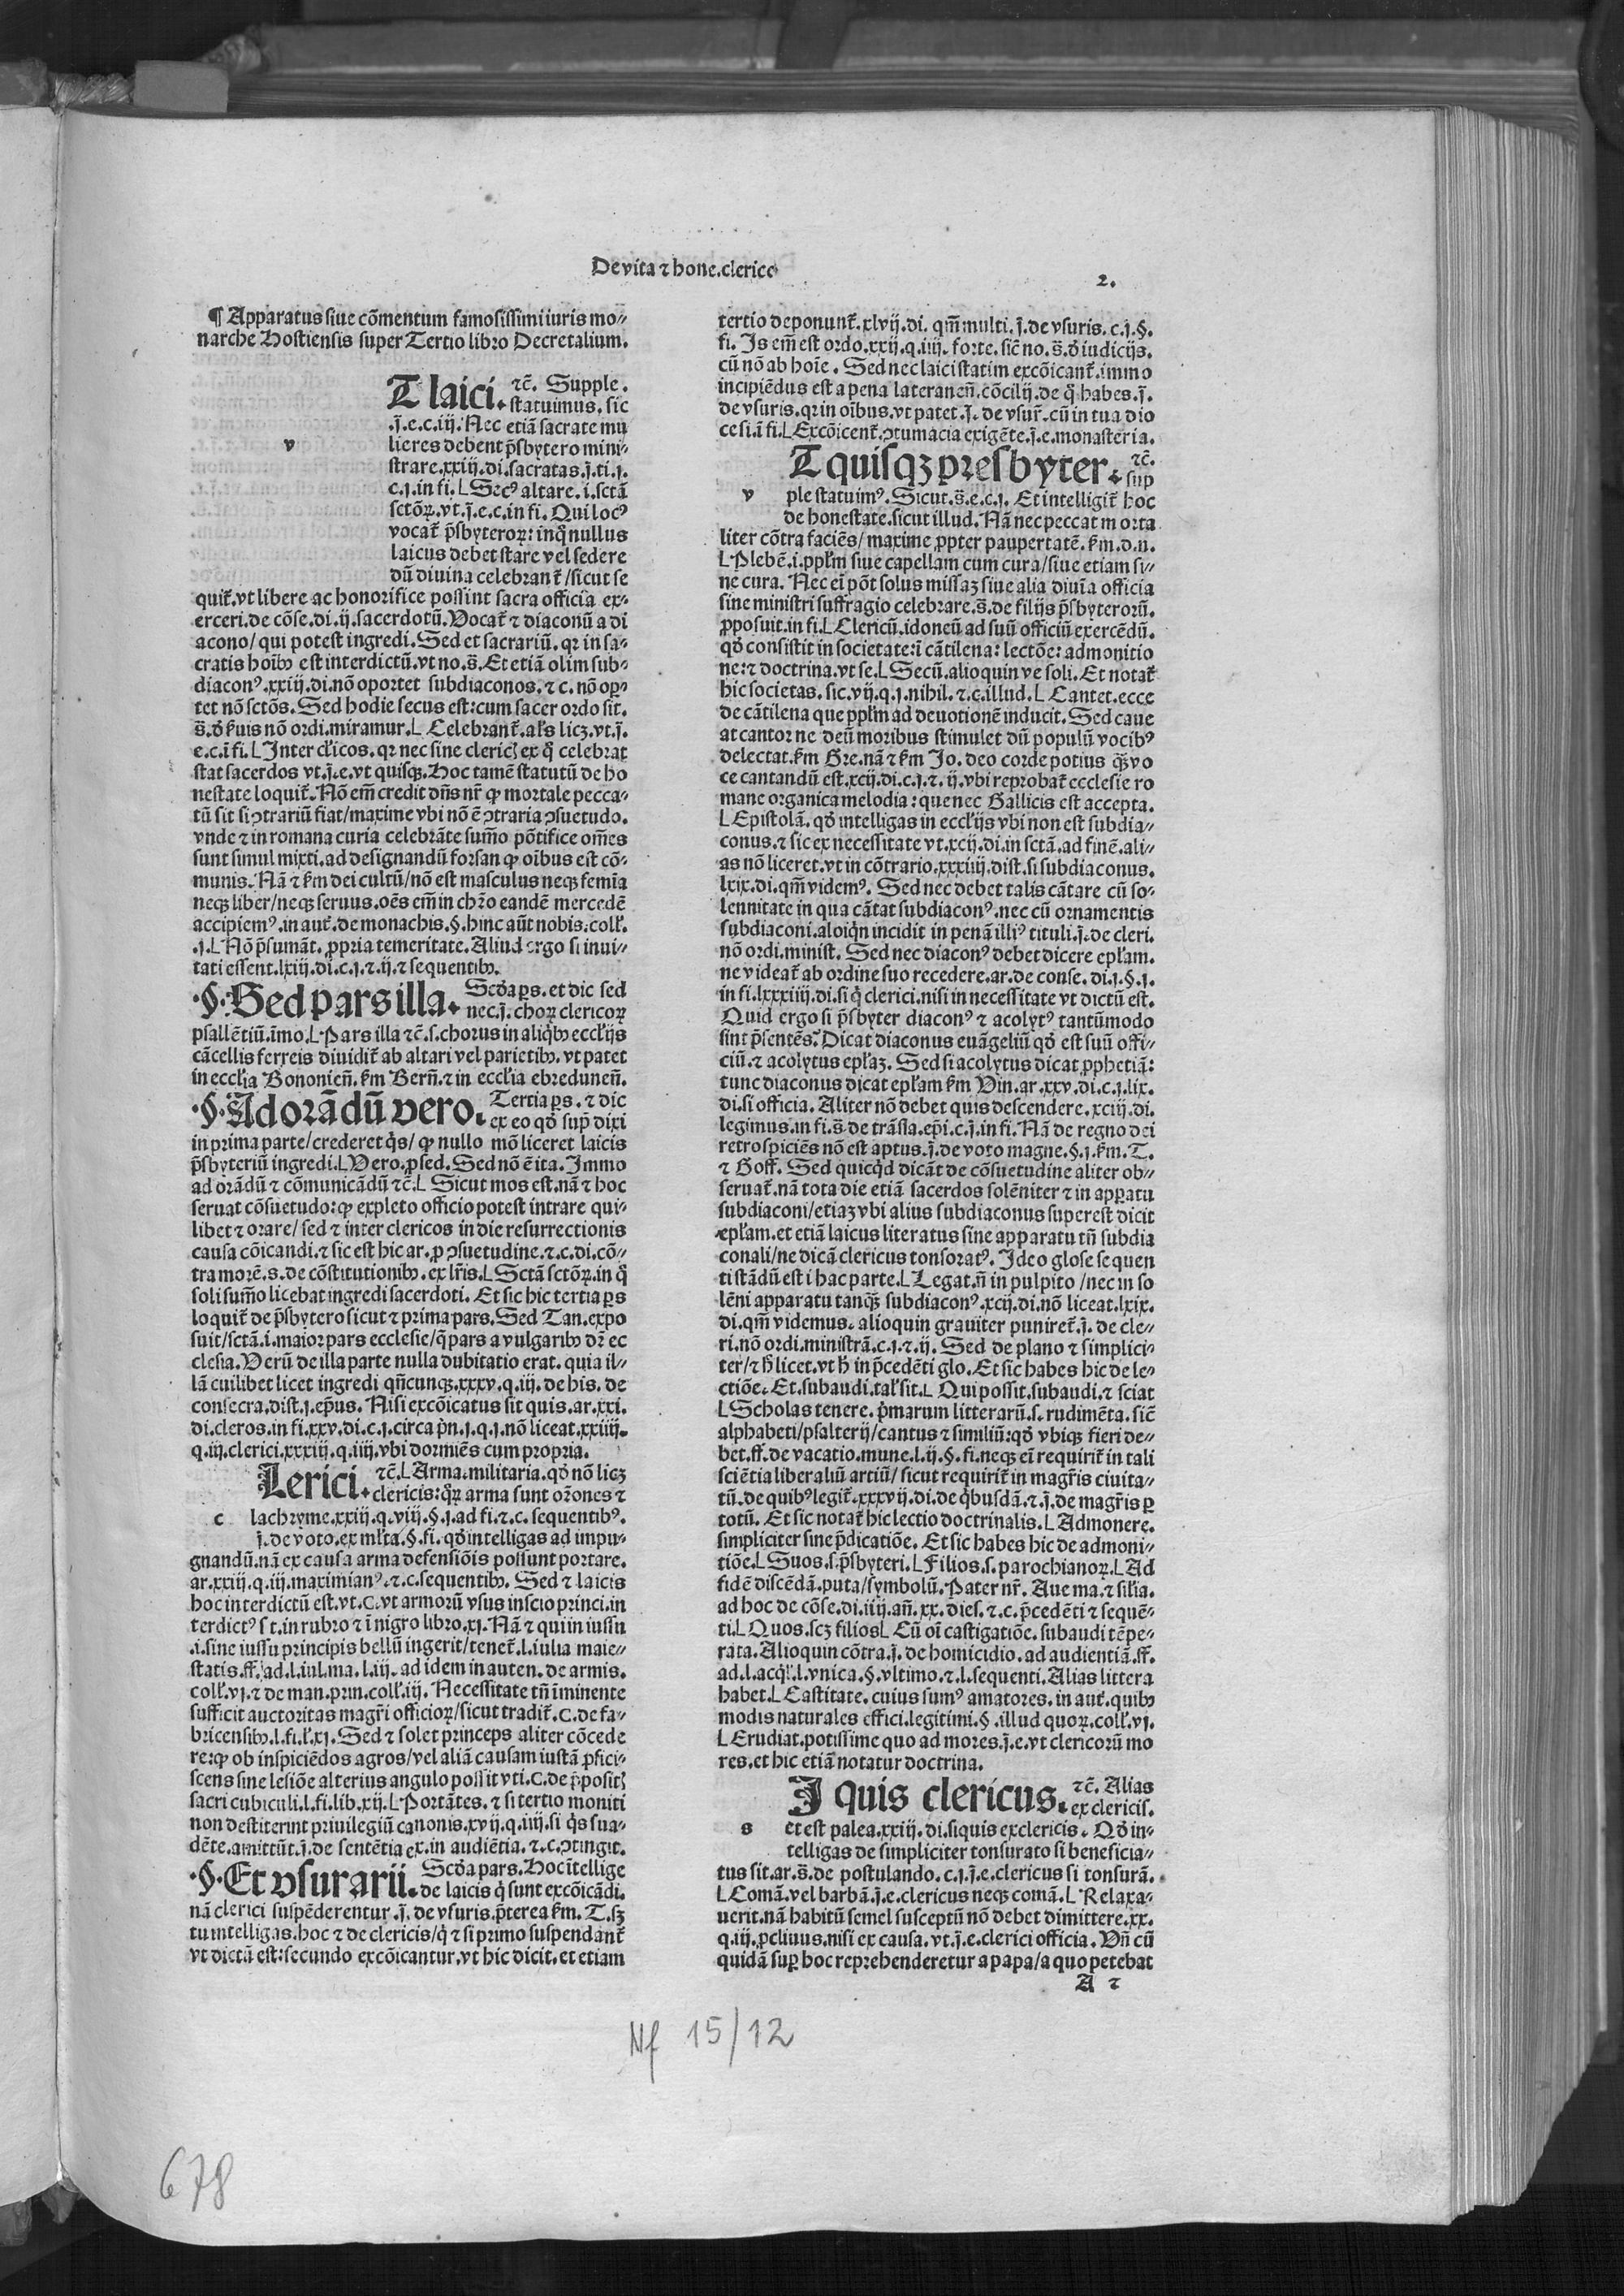 De vita ⁊ hone. clerico
2.
¶ Apparatus siue cōmentum famosissimi iuris mo⸗
narche Hostiensis super Tertio libro Decretalium.
T laici. ⁊c̄. Supple.
statuimus. sic
.j̄.e.c.iij. Nec etiā sacrate mu
v lieres debent p̄sbytero mini⸗
strare.xxiij.di.sacratas.j̄.ti.j.
c.j.in fi.⌊ Secꝰ altare.i.sctā
sctōꝝ.vt.j̄.e.c.in fi. Qui locꝰ
vocat᷑ p̄sbyteroꝝ: in q̊ nullus
laicus debet stare vel sedere
dū diuina celebrant᷑/sicut se
quit᷑.vt libere ac honorifice possint sacra officia ex⸗
erceri.de cōse.di.ij.sacerdotū. Vocat᷑ ⁊ diaconū a di
acono/qui potest ingredi. Sed et sacrariū. qr in sa⸗
cratis hoībꝰ est interdictū.vt no.s̄. Et etiā olim sub⸗
diaconꝰ.xxiij.di.nō oportet subdiaconos.⁊ c. nō opꝫ⸗
tet nō sctōs. Sed hodie secus est: cum sacer ordo sit.
s̄.de ẜuis nō ordi.miramur.⌊ Celebrant᷑.al's licꝫ.vt.j̄.
e.c.i fi.⌊ Inter cl'icos. qr nec sine cleric̨ ex q̊ celebrat
stat sacerdos vt.j̄.e.vt quisqꝫ. Hoc tamē statutū de ho
nestate loquit᷑. Nō em̄ credit dn̄s nr̄ ꝙ mortale pecca⸗
tū sit si ꝯtrariū fiat/maxime vbi nō ē ꝯtraria ꝯsuetudo.
vnde ⁊ in romana curia celebrāte sum̄o pōtifice om̄es
sunt simul mixti. ad designandū forsan ꝙ oībus est cō⸗
munis. Nā ⁊ km dei cultū/nō est masculus neqꝫ femīa
neqꝫ liber/neqꝫ seruus. oēs em̄ in chr̄o eandē mercedē
accipiemꝰ.in aut᷑.de monachis.§.hinc aūt nobis.coll'.
.j.⌊ Nō p̄sumāt. ꝓpria temeritate. Aliud ergo si inui⸗
tati essent.lxiij.di.c.j.⁊.ij.⁊ sequentibꝰ.
·§· Sed pars illa. Scd̄a ꝑs. et dic sed
nec.j̄.choꝝ clericoꝝ
psallētiū.īmo.⌊ Pars illa ⁊c̄.s.chorus in aliq̄bꝰ eccl'ijs
cācellis ferreis diuidit᷑ ab altari vel parietibꝰ. vt patet
in eccl'ia Bononien̄. km Bern̄. ⁊ in eccl'ia ebredunen̄.
·§· Ad orādū vero. Tertia ꝑs. ⁊ dic
ex eo qd̄ sup̄ dixi
in prima parte/crederet q̄s/ꝙ nullo mō liceret laicis
p̄sbyteriū ingredi.⌊ Vero.ꝓ sed. Sed nō ē ita. Immo
ad orādū ⁊ cōmunicādū ⁊c̄.⌊ Sicut mos est. nā ⁊ hoc
seruat cōsuetudo: ꝙ expleto officio potest intrare qui⸗
libet ⁊ orare/sed ⁊ inter clericos in die resurrectionis
causa cōicandi. ⁊ sic est hic ar. ꝓ ꝯsuetudine. ⁊.c.di.cō⸗
tra morē.s.de cōstitutionibꝰ.ex lr̄is.⌊ Sctā sctōꝝ. in q̊
soli sum̄o licebat ingredi sacerdoti. Et sic hic tertia ꝑs
loquit᷑ de p̄sbytero sicut ⁊ prima pars. Sed Tan. expo
suit/sctā.i.maior pars ecclesie/q̄ pars a vulgaribꝰ dr̄ ec
clesia. Verū de illa parte nulla dubitatio erat. quia il⸗
lā cuilibet licet ingredi qn̄cunqꝫ.xxxv.q.iij. de his. de
consecra.dist.j.ep̄us. Nisi excōicatus sit quis. ar.xxi.
di.cleros.in fi.xxv.di.c.j.circa p̄n.j.q.j.nō liceat.xxiiij.
q.iij.clerici.xxxiij.q.iiij.vbi dormiēs cum propria.
Lerici. ⁊c̄.⌊ Arma.militaria. qd̄ nō licꝫ
clericis: q̄ꝝ arma sunt or̄ones ⁊
c lachryme.xxiij.q.viij.§.j.ad fi.⁊.c. sequentibꝰ.
j̄.de voto.ex ml'ta.§.fi. qd̄ intelligas ad impu⸗
gnandū.nā ex causa arma defensiōis possunt portare.
ar.xxiij.q.iij.maximianꝰ.⁊.c.sequentibꝰ. Sed ⁊ laicis
hoc interdictū est.vt.C.vt armorū vsus inscio princi.in
terdictꝰ sit.in rubro ⁊ ī nigro libro.xj. Nā ⁊ qui in iussu
.i.sine iussu principis bellū ingerit/tenet᷑.l.iulia maie⸗
statis.ff.ad.l.iul.ma.l.iij. ad idem in auten. de armis.
coll'.vj.⁊ de man.prin.coll'.iij. Necessitate tn̄ īminente
sufficit auctoritas magr̄i officioꝝ/sicut tradit᷑. C. de fa⸗
bricensibꝰ.l.fi.l'.xj. Sed ⁊ solet princeps aliter cōcede
re: ꝙ ob inspiciēdos agros/vel aliā causam iustā ꝓfici⸗
scens sine lesiōe alterius angulo possit vti. C. de p̄posit̨
sacri cubiculi.l.fi.lib.xij.⌊ Portātes. ⁊ si tertio moniti
non destiterint priuilegiū canonis.xvij.q.iiij.si q̊s sua⸗
dēte.amittūt.j̄.de sentētia ex.in audiētia.⁊.c.ꝯtingit.
·§· Et vsurarii. Scd̄a pars. Hoc ītellige
de laicis q̄ sunt excōicādi.
nā clerici suspēderentur.j̄. de vsuris.p̄terea km. T. sꝫ
tu intelligas. hoc ⁊ de clericis/q̄ ⁊ si primo suspendant᷑
vt dictū est: secundo excōicantur. vt hic dicit. et etiam
tertio deponunt᷑.xlvij.di. qm̄ multi.j̄.de vsuris.c.j.§.
fi. Is em̄ est ordo.xxij.q.iiij.forte.sic̄ no.s̄.de iudicijs.
cū nō ab hoīe. Sed nec laici statim excōicant᷑. immo
incipiēdus est a pena lateranen̄.cōcilij. de q̄ habes.j̄.
de vsuris.qr in oībus. vt patet.j̄. de vsur̄. cū in tua dio
cesi.ī fi.⌊ Excōicent᷑.ꝯtumacia exigēte.j̄.e.monasteria.
T quisqꝫ presbyter. ⁊c̄.
sup
v ple statuimꝰ. Sicut.s̄.e.c.j. Et intelligit᷑ hoc
de honestate. sicut illud. Nā nec peccat morta
liter cōtra faciēs/maxime ꝓpter paupertatē.km.d.n.
⌊ Plebē.i.ppl'm siue capellam cum cura/siue etiam si⸗
ne cura. Nec eī pōt solus missaꝫ siue alia diuīa officia
sine ministri suffragio celebrare.s̄.de filijs p̄sbyterorū.
ꝓposuit.in fi.⌊ Clericū.idoneū ad suū officiū exercēdū.
qd̄ consistit in societate: ī cātilena: lectōe: admonitio
ne: ⁊ doctrina. vt se.⌊ Secū. alioquin ve soli. Et notat᷑
hic societas. sic.vij.q.j.nihil.⁊.c.illud.⌊ Cantet.ecce
de cātilena que ppl'm ad deuotionē inducit. Sed caue
at cantor ne deū moribus stimulet dū populū vocibꝰ
delectat.km Gre.nā ⁊ km Jo.deo corde potius q̄ꝫ vo
ce cantandū est.xcij.di.c.j.⁊.ij.vbi reprobat᷑ ecclesie ro
mane organica melodia: que nec Gallicis est accepta.
⌊ Epistolā. qd̄ intelligas in eccl'ijs vbi non est subdia⸗
conus. ⁊ sic ex necessitate vt.xcij.di.in sctā.ad finē. ali⸗
as nō liceret. vt in cōtrario.xxxiiij.dist.si subdiaconus.
lxix.di.qm̄ videmꝰ. Sed nec debet talis cātare cū so⸗
lennitate in qua cātat subdiaconꝰ. nec cū ornamentis
subdiaconi. aloiqn incidit in penā illiꝰ tituli.j̄.de cleri.
nō ordi.minist. Sed nec diaconꝰ debet dicere epl'am.
ne videat᷑ ab ordine suo recedere. ar. de conse. di.j.§.j.
in fi.lxxxiiij.di.si q̄ clerici. nisi in necessitate vt dictū est.
Quid ergo si p̄sbyter diaconꝰ ⁊ acolytꝰ tantūmodo
sint p̄sentes? Dicat diaconus euāgeliū qd̄ est suū offi⸗
ciū. ⁊ acolytus epl'aꝫ. Sed si acolytus dicat ꝓphetiā:
tunc diaconus dicat epl'am km Vin. ar.xxv.di.c.j.lix.
di.si officia. Aliter nō debet quis descendere.xciij.di.
legimus.in fi.s̄.de trāsla.ep̄i.c.j.in fi. Nā de regno dei
retrospiciēs nō est aptus.j̄.de voto magne.§.j.km.T.
⁊ Goff. Sed quicq̄d dicāt de cōsuetudine aliter ob⸗
seruat᷑. nā tota die etiā sacerdos solēniter ⁊ in apparatu
subdiaconi/etiaꝫ vbi alius subdiaconus superest dicit
epl'am. et etiā laicus literatus sine apparatu tn̄ subdia
conali/ne dicā clericus tonsoratꝰ. Ideo glose sequen
ti stādū est i hac parte.⌊ Legat. n̄ in pulpito/nec in so
lēni apparatu tanq̄ꝫ subdiaconꝰ.xcij.di.nō liceat.lxix.
di.qm̄ videmus. alioquin grauiter puniret᷑.j̄. de cle⸗
ri.nō ordi.ministrā.c.j.⁊.ij. Sed de plano ⁊ simplici⸗
ter/⁊ h̄ licet. vt h̄ in p̄cedēti glo. Et sic habes hic de le⸗
ctiōe. Et. subaudi. tal' sit.⌊ Qui possit. subaudi. ⁊ sciat
⌊ Scholas tenere. p̄marum litterarū. s. rudimēta. sic̄
alphabeti/psalterij/cantus ⁊ similiū: qd̄ vbiqꝫ fieri de⸗
bet.ff.de vacatio.mune.l.ij.§.fi.neqꝫ eī requirit᷑ in tali
sciētia liberaliū artiū/sicut requirit᷑ in magr̄is ciuita⸗
tū. de quibꝰ legit᷑.xxxvij.di.de q̄busdā.⁊.j̄.de magr̄is ꝑ
totū. Et sic notat᷑ hic lectio doctrinalis.⌊ Admonere.
simpliciter sine p̄dicatiōe. Et sic habes hic de admoni⸗
tiōe.⌊ Suos.s.p̄sbyteri.⌊ Filios.s.parochianoꝝ.⌊ Ad
fidē discēdā.puta/symbolū. Pater nr̄. Aue ma. ⁊ silia.
ad hoc de cōse.di.iiij.an̄.xx. dies. ⁊.c. p̄cedēti ⁊ sequē⸗
ti.⌊ Quos.scꝫ filios⌊ Cū oī castigatiōe. subaudi tēpe⸗
rata. Alioquin cōtra.j̄.de homicidio.ad audientiā.ff.
ad.l.acq̄l'.l.vnica.§.vltimo.⁊.l.sequenti. Alias littera
habet.⌊ Castitate. cuius sumꝰ amatores. in aut᷑. quibꝰ
modis naturales effici.legitimi.§.illud quoꝝ.coll'.vj.
⌊ Erudiat.potissime quo ad mores.j̄.e.vt clericorū mo
res. et hic etiā notatur doctrina.
I quis clericus. ⁊c̄. Alias
ex clericis.
s et est palea.xxiij.di.si quis ex clericis. Qd̄ in⸗
telligas de simpliciter tonsurato si beneficia⸗
tus sit.ar.s̄.de postulando.c.j.j̄.e.clericus si tonsurā.
⌊ Comā.vel barbā.j̄.e.clericus neqꝫ comā.⌊ Relaxa⸗
uerit. nā habitū semel susceptū nō debet dimittere.xx.
q.iij.ꝓcliuus.nisi ex causa.vt.j̄.e.clerici officia. Vn̄ cū
quidā suꝑ hoc reprehenderetur a papa/a quo petebat
A 2
Nf 15/12
678